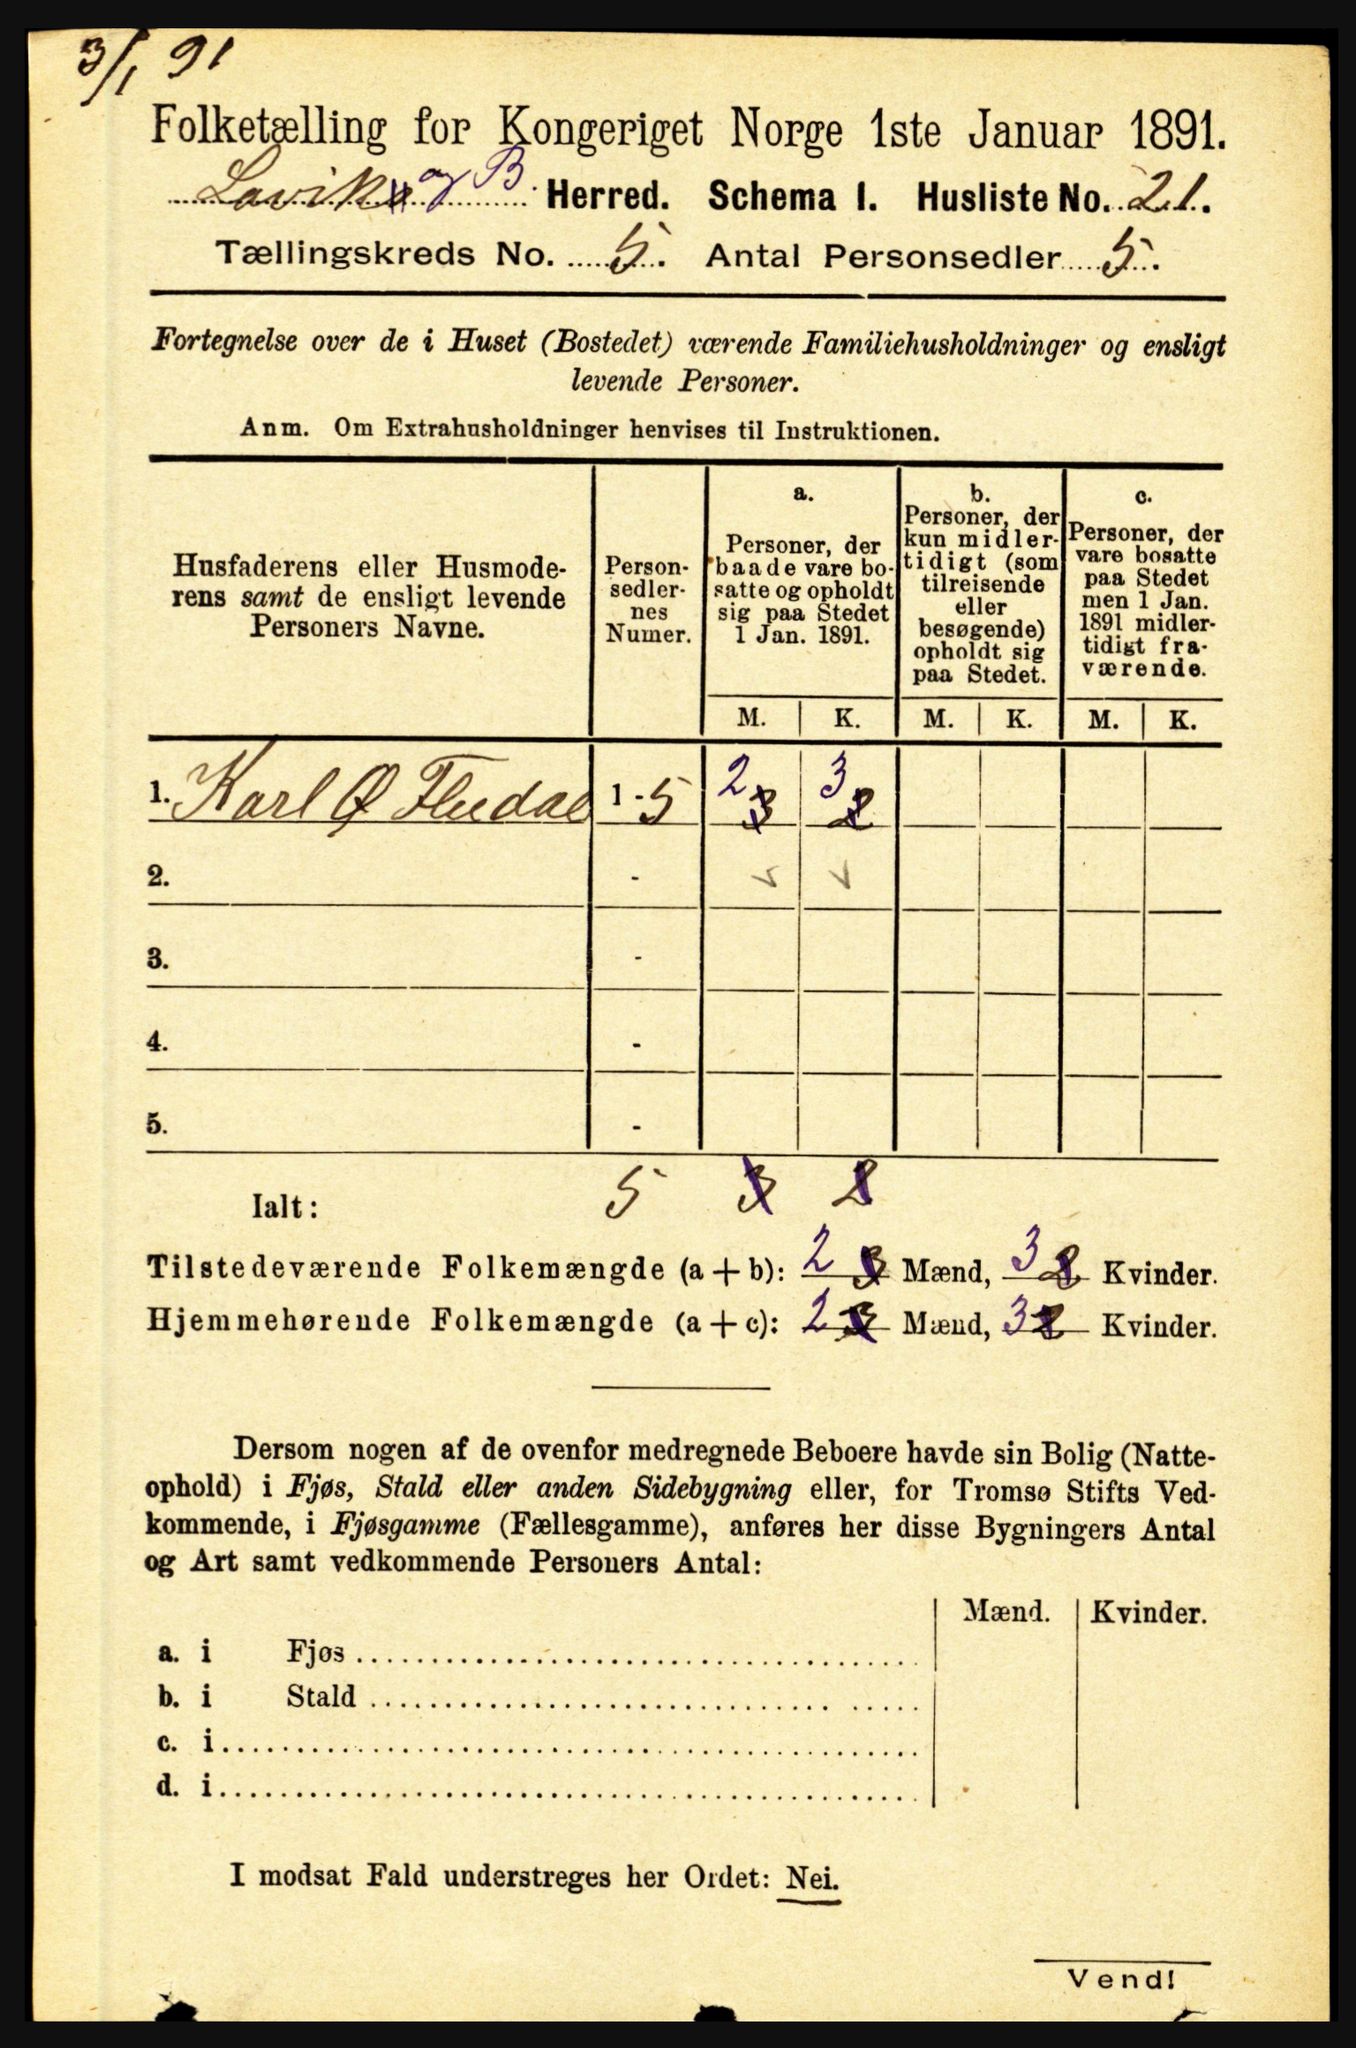 3/1 91
Folketælling for Kongeriget Norge 1ste Januar 1891.
Lavik og B. Herred. Schema I. Husliste No. 21.
Tællingskreds No. 5. Antal Personsedler 5.
Fortegnelse over de i Huset (Bostedet) værende Familiehusholdninger og ensligt
levende Personer.
Anm. Om Extrahusholdninger henvises til Instruktionen.
Husfaderens eller Husmode-
rens samt de ensligt levende
Personers Navne.
Person-
sedler-
nes
Numer.
a.
Personer, der
baade vare bo-
satte og opholdt
sig paa Stedet
1 Jan. 1891.
b.
Personer, der
kun midler-
tidigt (som
tilreisende
eller
besøgende)
opholdt sig
paa Stedet.
c.
Personer, der
vare bosatte
paa Stedet
men 1 Jan.
1891 midler-
tidigt fra-
værende.
M. K. M. K. M. K.
1. Karl Ø 1-5 2 3 3 2
2. -
3. -
4. -
5. -
Ialt: 5 3 2
Tilstedeværende Folkemængde (a + b): 2 3 Mænd, 3 2 Kvinder.
Hjemmehørende Folkemængde (a + c): 2 3 Mænd, 3 2 Kvinder.
Dersom nogen af de ovenfor medregnede Beboere havde sin Bolig (Natte-
ophold) i Fjøs, Stald eller anden Sidebygning eller, for Tromsø Stifts Ved-
kommende, i Fjøsgamme (Fællesgamme), anføres her disse Bygningers Antal
og Art samt vedkommende Personers Antal:
Mænd. Kvinder.
a. i Fjøs
b. i Stald
c. i
d. i
I modsat Fald understreges her Ordet: Nei.
Vend!